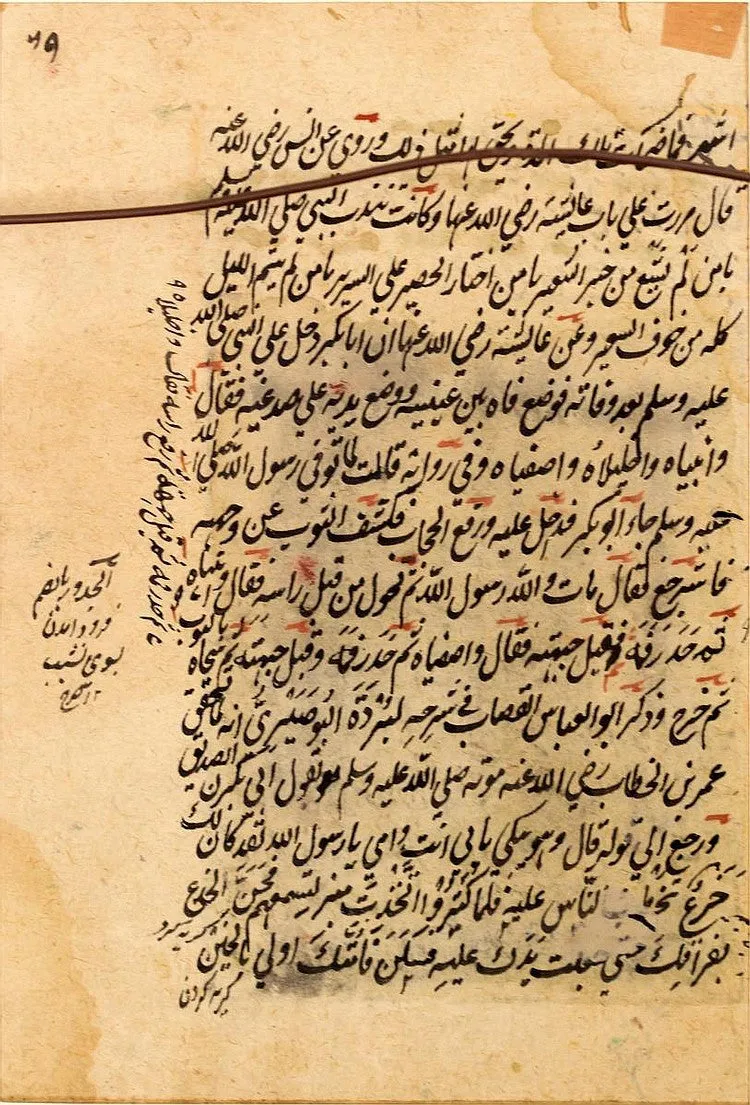 ٧٩
اشهر فما ضحكت تلك المدة ويحق لها مثل ذلك وروي عن انس رضي الله عنه
قال مررت علي باب عائشة رضي الله عنها وكانت تندب النبي صلي الله عليه وسلم
يا من لم يشبع من خبز الشعير يا من اختار الحصير علي السرير يا من لم ينم الليل
كله من خوف السعير وعن عائشة رضي الله عنها ان ابا بكر دخل علي النبي صلي الله
عليه وسلم بعد وفاته فوضع فاه بين عينيه ووضع يديه علي صدغيه فقال
وانبياه واخليلاه واصفياه وفي رواية قالت لما توفي رسول الله صلي الله
عليه وسلم جاء ابو بكر فدخل عليه ورفع الحجاب فكشف الثوب عن وجهه
فاسترجع فقال مات والله رسول الله ثم تحول من قبل راسه فقال وانبياه
ثم حدر فمه فقبل جبهته فقال واصفياه ثم حدر فمه وقبل جبهته ثم سجاه بالثوب
ثم خرج وذكر ابو العباس القصاب في شرحه لبردة البوصيري انه لما تحقق
عمر بن الخطاب رضي الله عنه موته صلي الله عليه وسلم بقول ابي بكر الصديق
ورجع الي قوله قال وهو يبكي بابي انت وامي يا رسول الله لقد كان لك
جزع تخطب الناس عليه فلما كثروا اتخذت منبر لتسمعهم فحن الجذع
بفراقك حتي جعلت يدك عليه فسكن فامتك اولي بالحنين
گریه کردن
الحدور بالضم
فرود امدن
بسوی نشیب
۱۲ صراح
ثم حدر فمه ثم قبل جبهته ثم رفع راسه فقال واخليلاه